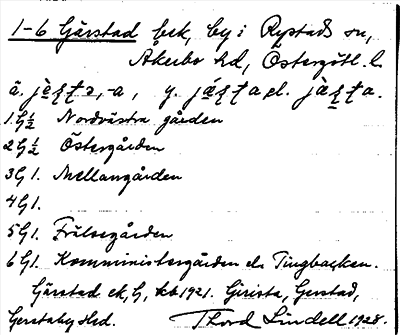 1-6 Gärstad bsk, by i Rystads sn,
Åkerbo hd, Östergötl. l.
1 G ½ Nordvästra gården
2 G ½ Östergården
3 G 1. Mellangården
4 G 1.
5 G 1. Frälsegården
6 G 1. Komministergården el. Tingbacken.
Gärstad ek, G, kb 1921. Girista, Gerstad,
Gerstaby Hsd. Thord Lindell 1928.